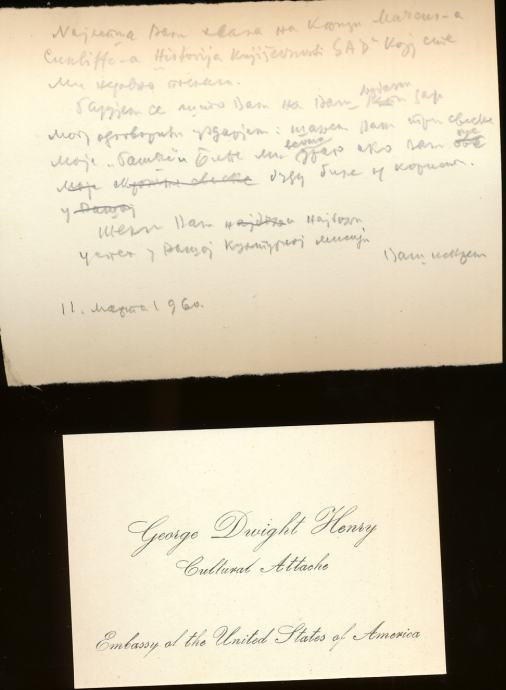 Најлепша Вам хвала на књизи Marcus-a
Cunliffe-a Historija Književnosti SAD" Коју сте
ми
љубазни
се што Вам на Вашу дар
могу одговорити уздарјем: шаљем Вам три свеске
моје „Баштине Биће ми драго ако Вам
моје буду биле од користи.
у Вашој
Желим Вам најбољи
успех у Вашој Културној мисији
Ваш
11. марта 1960.
George Dwight Henry
Cultural Attache
Embassy of the United States of America